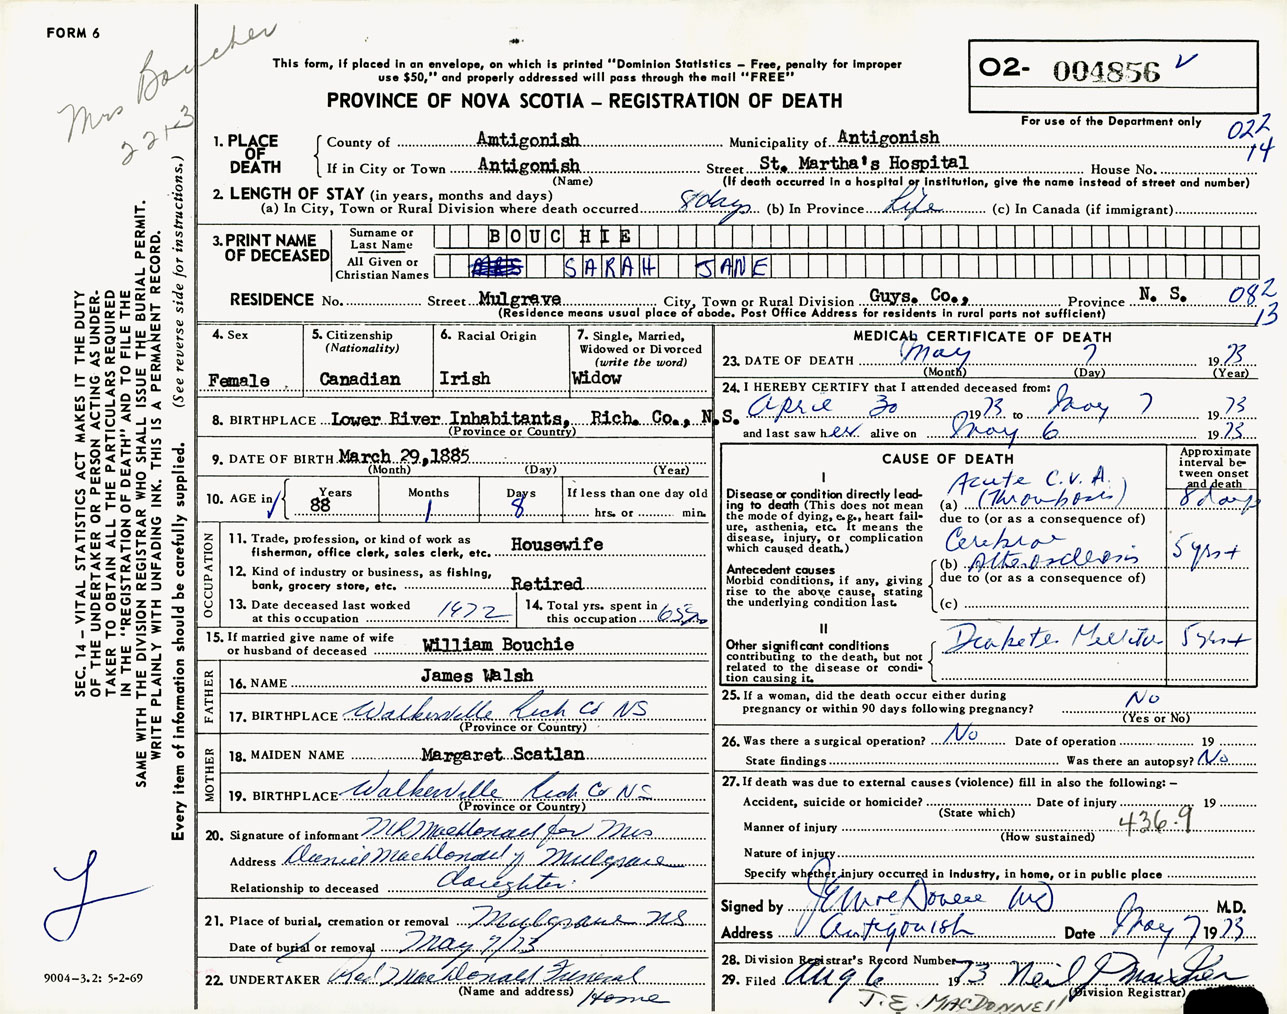 FORM 6
Mrs Boucher
22 1-3
This form, if placed in an envelope, on which is printed "Dominion Statistics – Free, penalty for improper
use $50," and properly addressed will pass through the mail "FREE"
PROVINCE OF NOVA SCOTIA – REGISTRATION OF DEATH
02- 004856
For use of the Department only
022
14
1. PLACE OF DEATH
County of Amtigonish Municipality of Antigonish
If in City or Town Antigonish Street St. Martha's Hospital House No.
(Name) (If death occurred in a hospital or institution, give the name instead of street and number)
2. LENGTH OF STAY (in years, months and days)
(a) In City, Town or Rural Division where death occurred 8 days (b) In Province Life (c) In Canada (if immigrant)
3. PRINT NAME OF DECEASED
Surname or Last Name BOUCHIE
All Given or Christian Names SARAH JANE
RESIDENCE No. Street Mulgrave City, Town or Rural Division Guys. Co., Province N. S.
082
13
(Residence means usual place of abode. Post Office Address for residents in rural parts not sufficient)
4. Sex
Female
5. Citizenship
(Nationality)
Canadian
6. Racial Origin
Irish
7. Single, Married,
Widowed or Divorced
(write the word)
Widow
8. BIRTHPLACE Lower River Inhabitants, Rich. Co., N.S.
(Province or Country)
9. DATE OF BIRTH March 29, 1885
(Month) (Day) (Year)
10. AGE in
Years 88
Months 1
Days 8
If less than one day old
hrs. or min.
OCCUPATION
11. Trade, profession, or kind of work as
fisherman, office clerk, sales clerk, etc. Housewife
12. Kind of industry or business, as fishing,
bank, grocery store, etc. Retired
13. Date deceased last worked
at this occupation 1972
14. Total yrs. spent in
this occupation 65 yrs
15. If married give name of wife
or husband of deceased William Bouchie
FATHER
16. NAME James Walsh
17. BIRTHPLACE Walkerville Rich Co NS
(Province or Country)
MOTHER
18. MAIDEN NAME Margaret Scatlan
19. BIRTHPLACE Walkerville Rich Co NS
(Province or Country)
20. Signature of informant MR MacDonald for Mrs
Address Daniel MacDonald Mulgrave
Relationship to deceased daughter.
21. Place of burial, cremation or removal Mulgrave NS
Date of burial or removal May 9/73
22. UNDERTAKER MacDonald Funeral
(Name and address) Home
MEDICAL CERTIFICATE OF DEATH
23. DATE OF DEATH May 7 1973
(Month) (Day) (Year)
24. I HEREBY CERTIFY that I attended deceased from:
April 30 1973 to May 7 1973
and last saw her alive on May 6 1973
CAUSE OF DEATH
Approximate
interval be-
tween onset
and death
I
Disease or condition directly lead-
ing to death (This does not mean
the mode of dying, e.g., heart fail-
ure, asthenia, etc. It means the
disease, injury, or complication
which caused death.)
Acute C.V.A.
(a) (Thrombosis) 8 days
due to (or as a consequence of)
Cerebral
(b) Atherosclerosis 5 yrs +
due to (or as a consequence of)
(c)
Antecedent causes
Morbid conditions, if any, giving
rise to the above cause, stating
the underlying condition last.
II
Other significant conditions
contributing to the death, but not
related to the disease or condi-
tion causing it.
Diabetes Mellitus 5 yrs +
25. If a woman, did the death occur either during
pregnancy or within 90 days following pregnancy? No
(Yes or No)
26. Was there a surgical operation? No Date of operation 19
State findings Was there an autopsy? No
27. If death was due to external causes (violence) fill in also the following: –
Accident, suicide or homicide? Date of injury 19
(State which)
Manner of injury 436.9
(How sustained)
Nature of injury
Specify whether injury occurred in industry, in home, or in public place
Signed by M.D.
Address Antigonish Date May 7 1973
28. Division Registrar's Record Number
29. Filed Aug 6 1973 Neil
(Division Registrar)
J. E. MACDONNELL
SEC. 14 – VITAL STATISTICS ACT MAKES IT THE DUTY
OF THE UNDERTAKER OR PERSON ACTING AS UNDER-
TAKER TO OBTAIN ALL THE PARTICULARS REQUIRED
IN THE "REGISTRATION OF DEATH" AND TO FILE THE
SAME WITH THE DIVISION REGISTRAR WHO SHALL ISSUE THE BURIAL PERMIT.
WRITE PLAINLY WITH UNFADING INK. THIS IS A PERMANENT RECORD.
Every item of information should be carefully supplied. (See reverse side for instructions.)
9004-3.2: 5-2-69